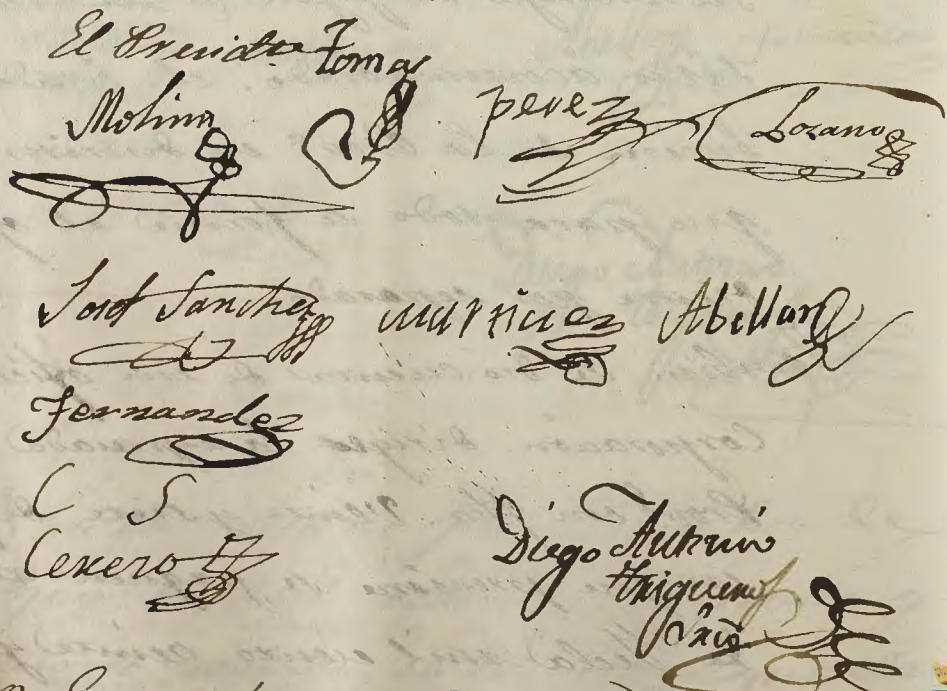 El Presidte Tomas
Molina perez Lozano
Josef Sanchez martinez Abellan
Fernandez
C S
Cerero
Diego Antonio
Trigueros
Srio